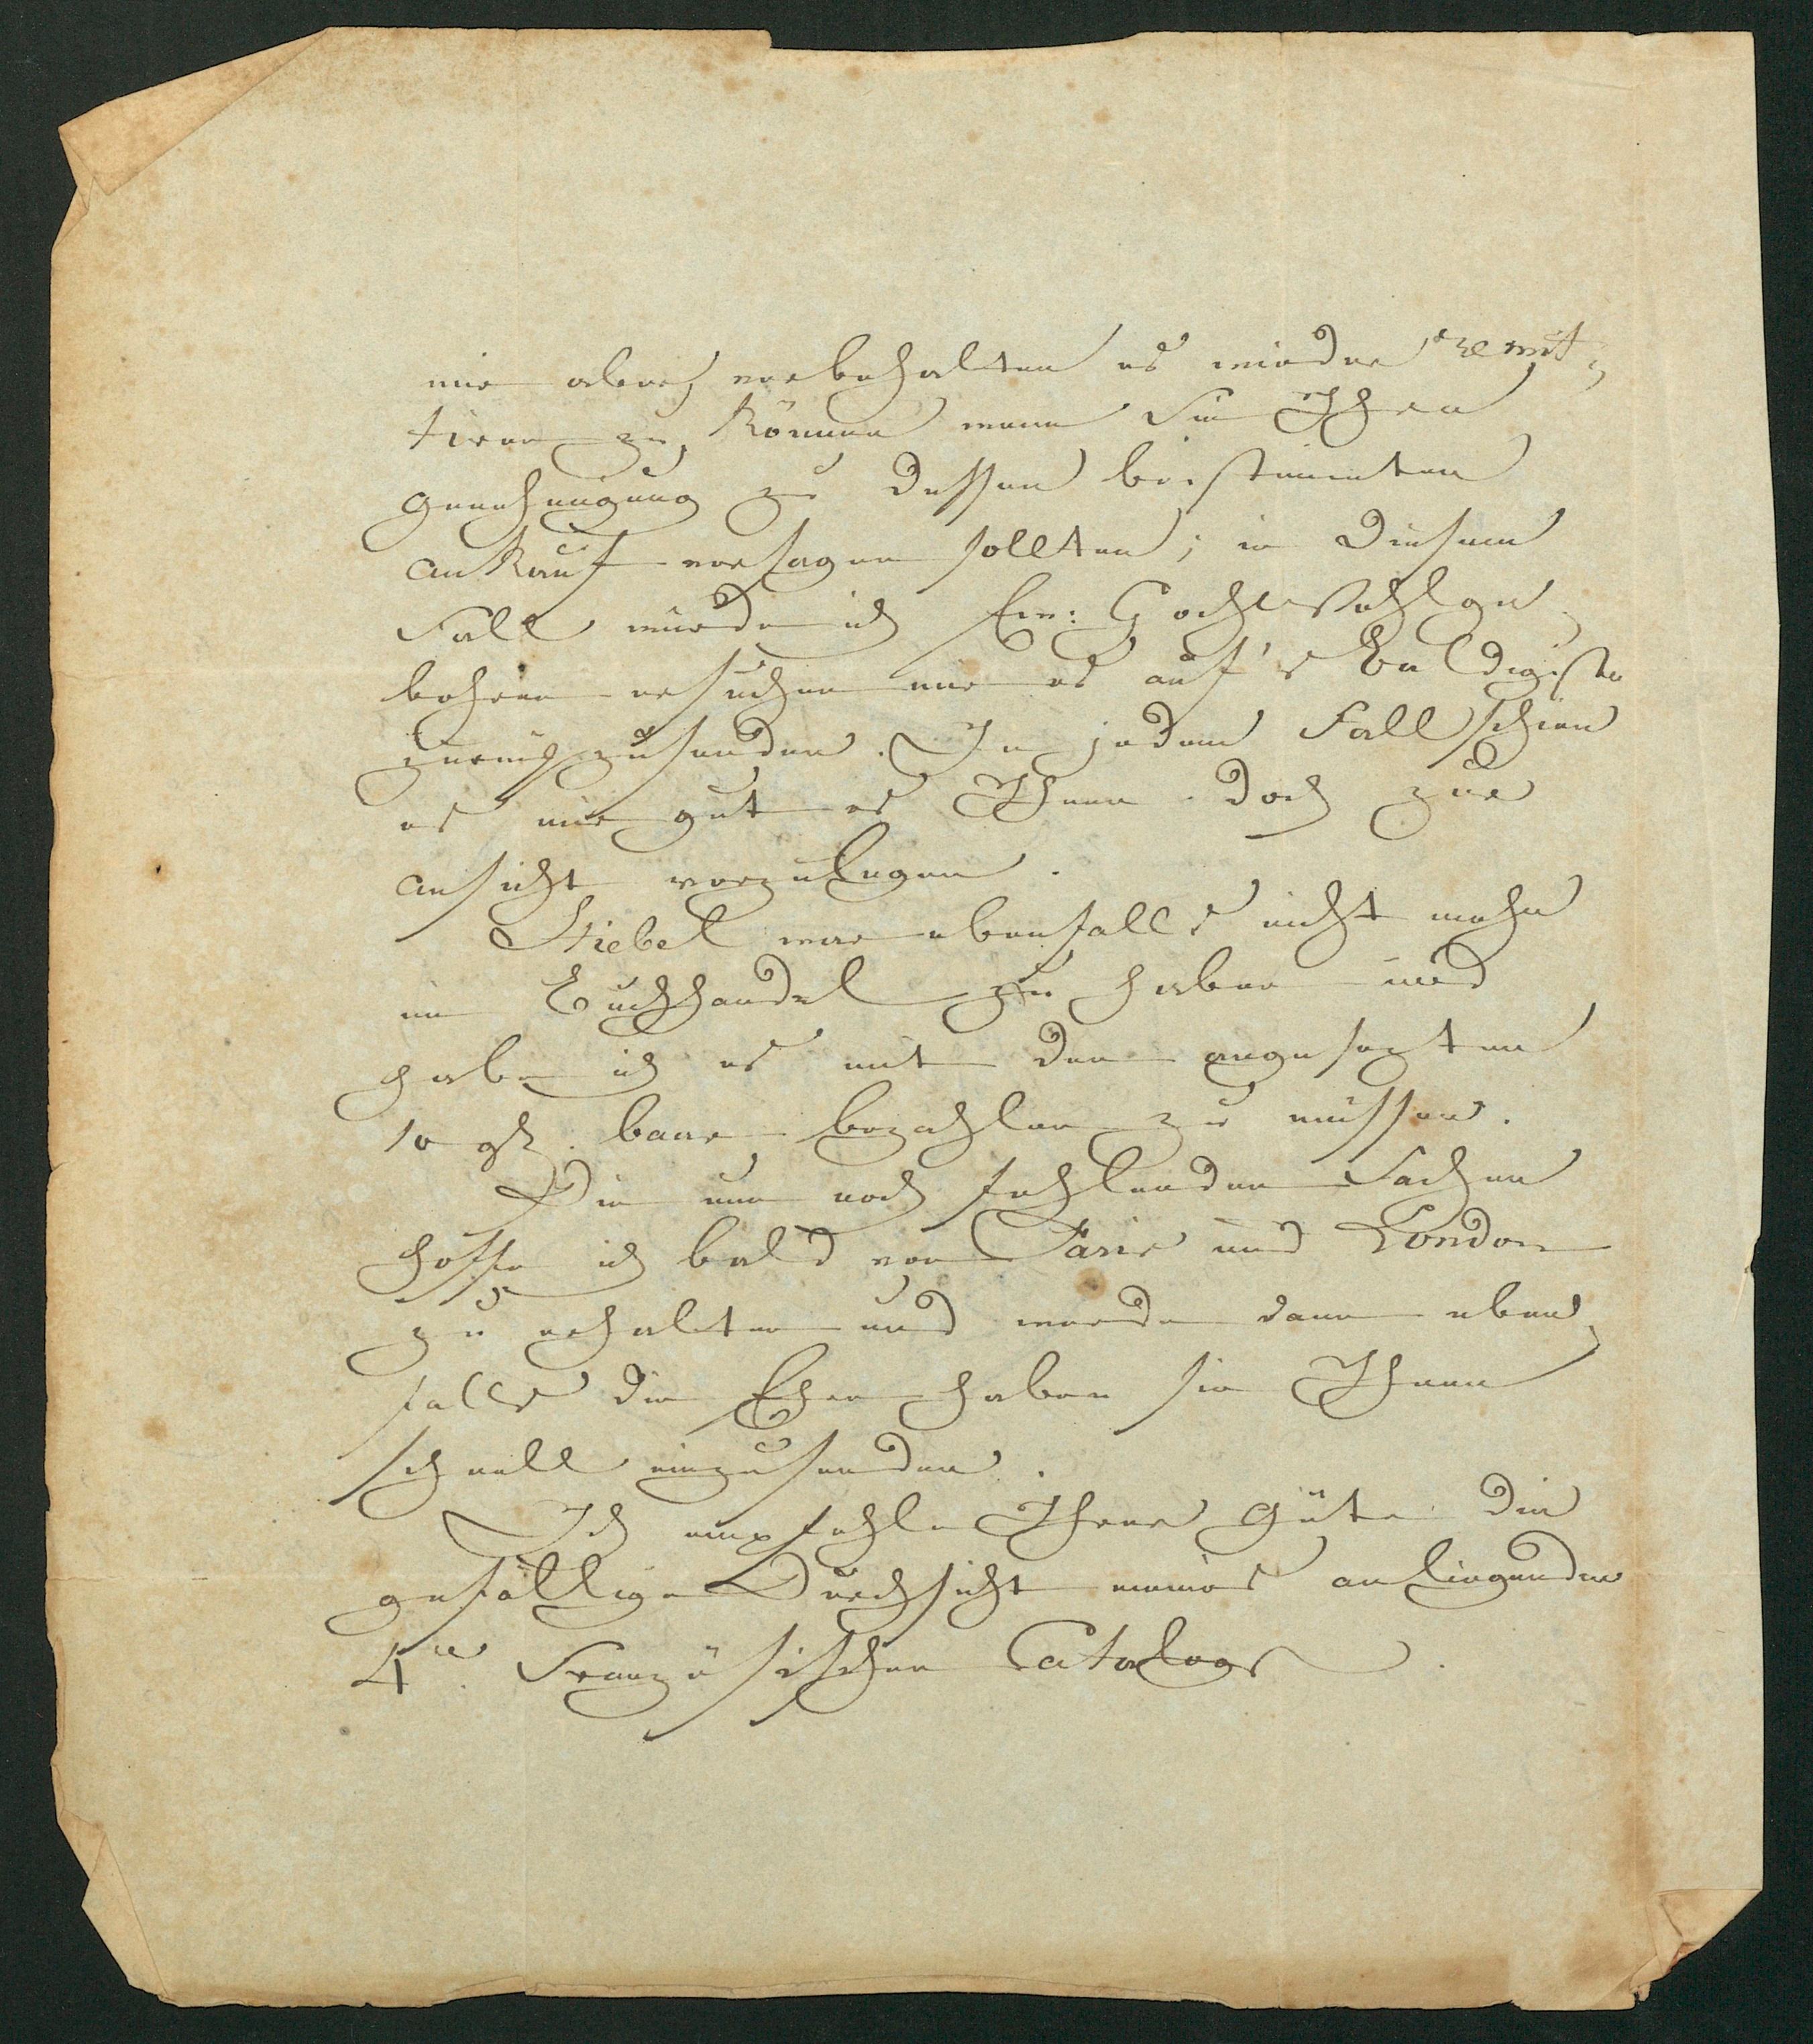 mir aber vorbehalten es wieder remit-
tiren zu können wenn Sie Ihren
genehmigung zu dessen bestimmten
ankauf versagen sollten; in diesem
Fall würde ich Ew: Hochwohlge-
bohren ersuchen mir es auf's baldigste
zurückzusenden. In jedem Fall schien
es mir gut es Ihnen doch zur
ansicht vorzulegen.
Stiebel war ebenfalls nicht mehr
im Buchhandel zu haben und
habe ich es mit den angesezten
10 gl. baar bezahlen zu müssen.
Die nun noch fehlenden Sachen
hoffe ich bald von Paris und London
zu erhalten und werde dann eben-
falls die Ehre haben sie Ihnen
schnell einzusenden.
Ich empfehle Ihrer Güte die
gefällige Durchsicht meines anliegenden
4n. Französischen Catalogs